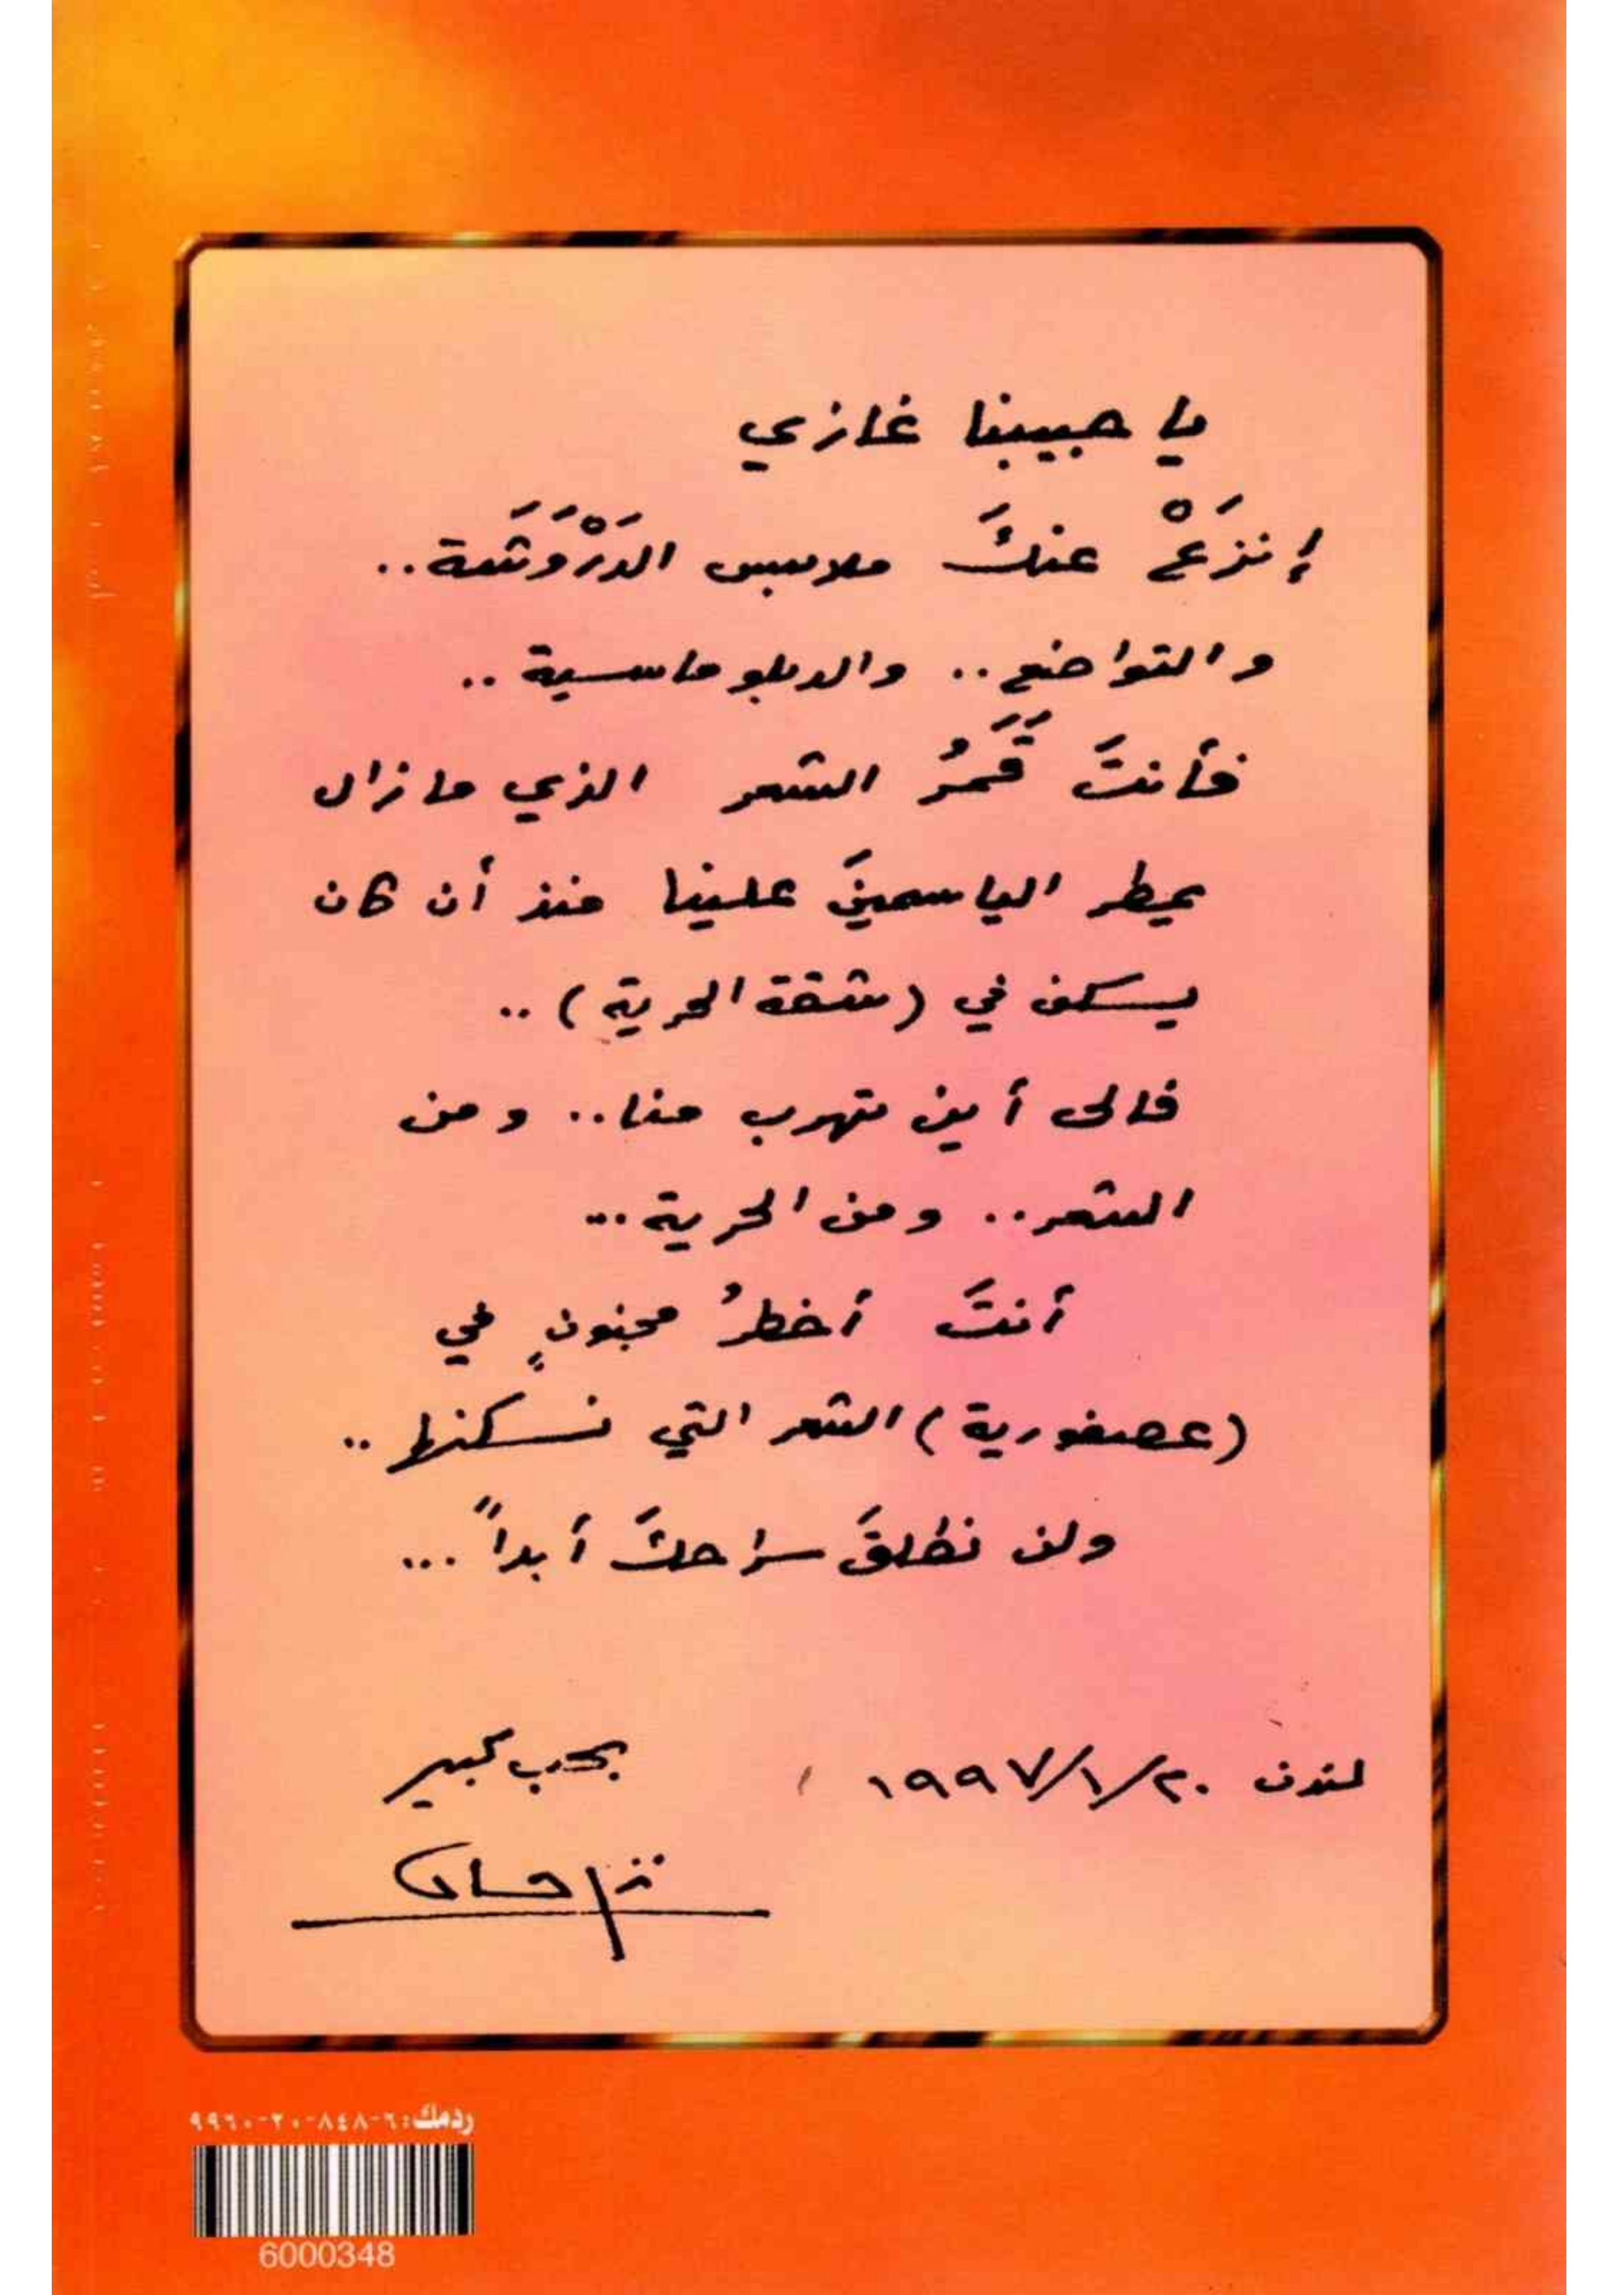 يا حبيبنا غازي
إنزَعْ عنكَ ملابس الدَرْوَشَة..
والتواضع.. والدبلوماسية..
فأنتَ قَمَرُ الشعر الذي مازال
يمطر الياسمينَ علينا منذ أن كان
يسكن في (شقة الحرية)..
فالى أين تهرب منا.. ومن
الشعر.. ومن الحرية...
أنتَ أخطرُ مجنونٍ في
(عصفورية) الشعر التي نسكنها..
ولن نطلقَ سراحكَ أبداً...
لندن ٢٠/١/١٩٩٧
بحب كبير
نزار قباني
ردمك: ٦-٨٤٨-٢٠-٩٩٦٠
6000348